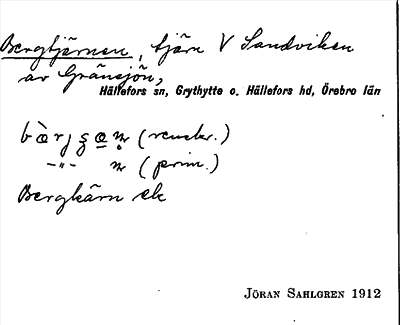 Bergtjärnen, tjärn V Sandviken
av Gränsjön,
Hällefors sn, Grythytte o. Hällefors hd, Örebro län
(renskr.)
-"- (prim.)
Bergkärn ek
JÖRAN SAHLGREN 1912